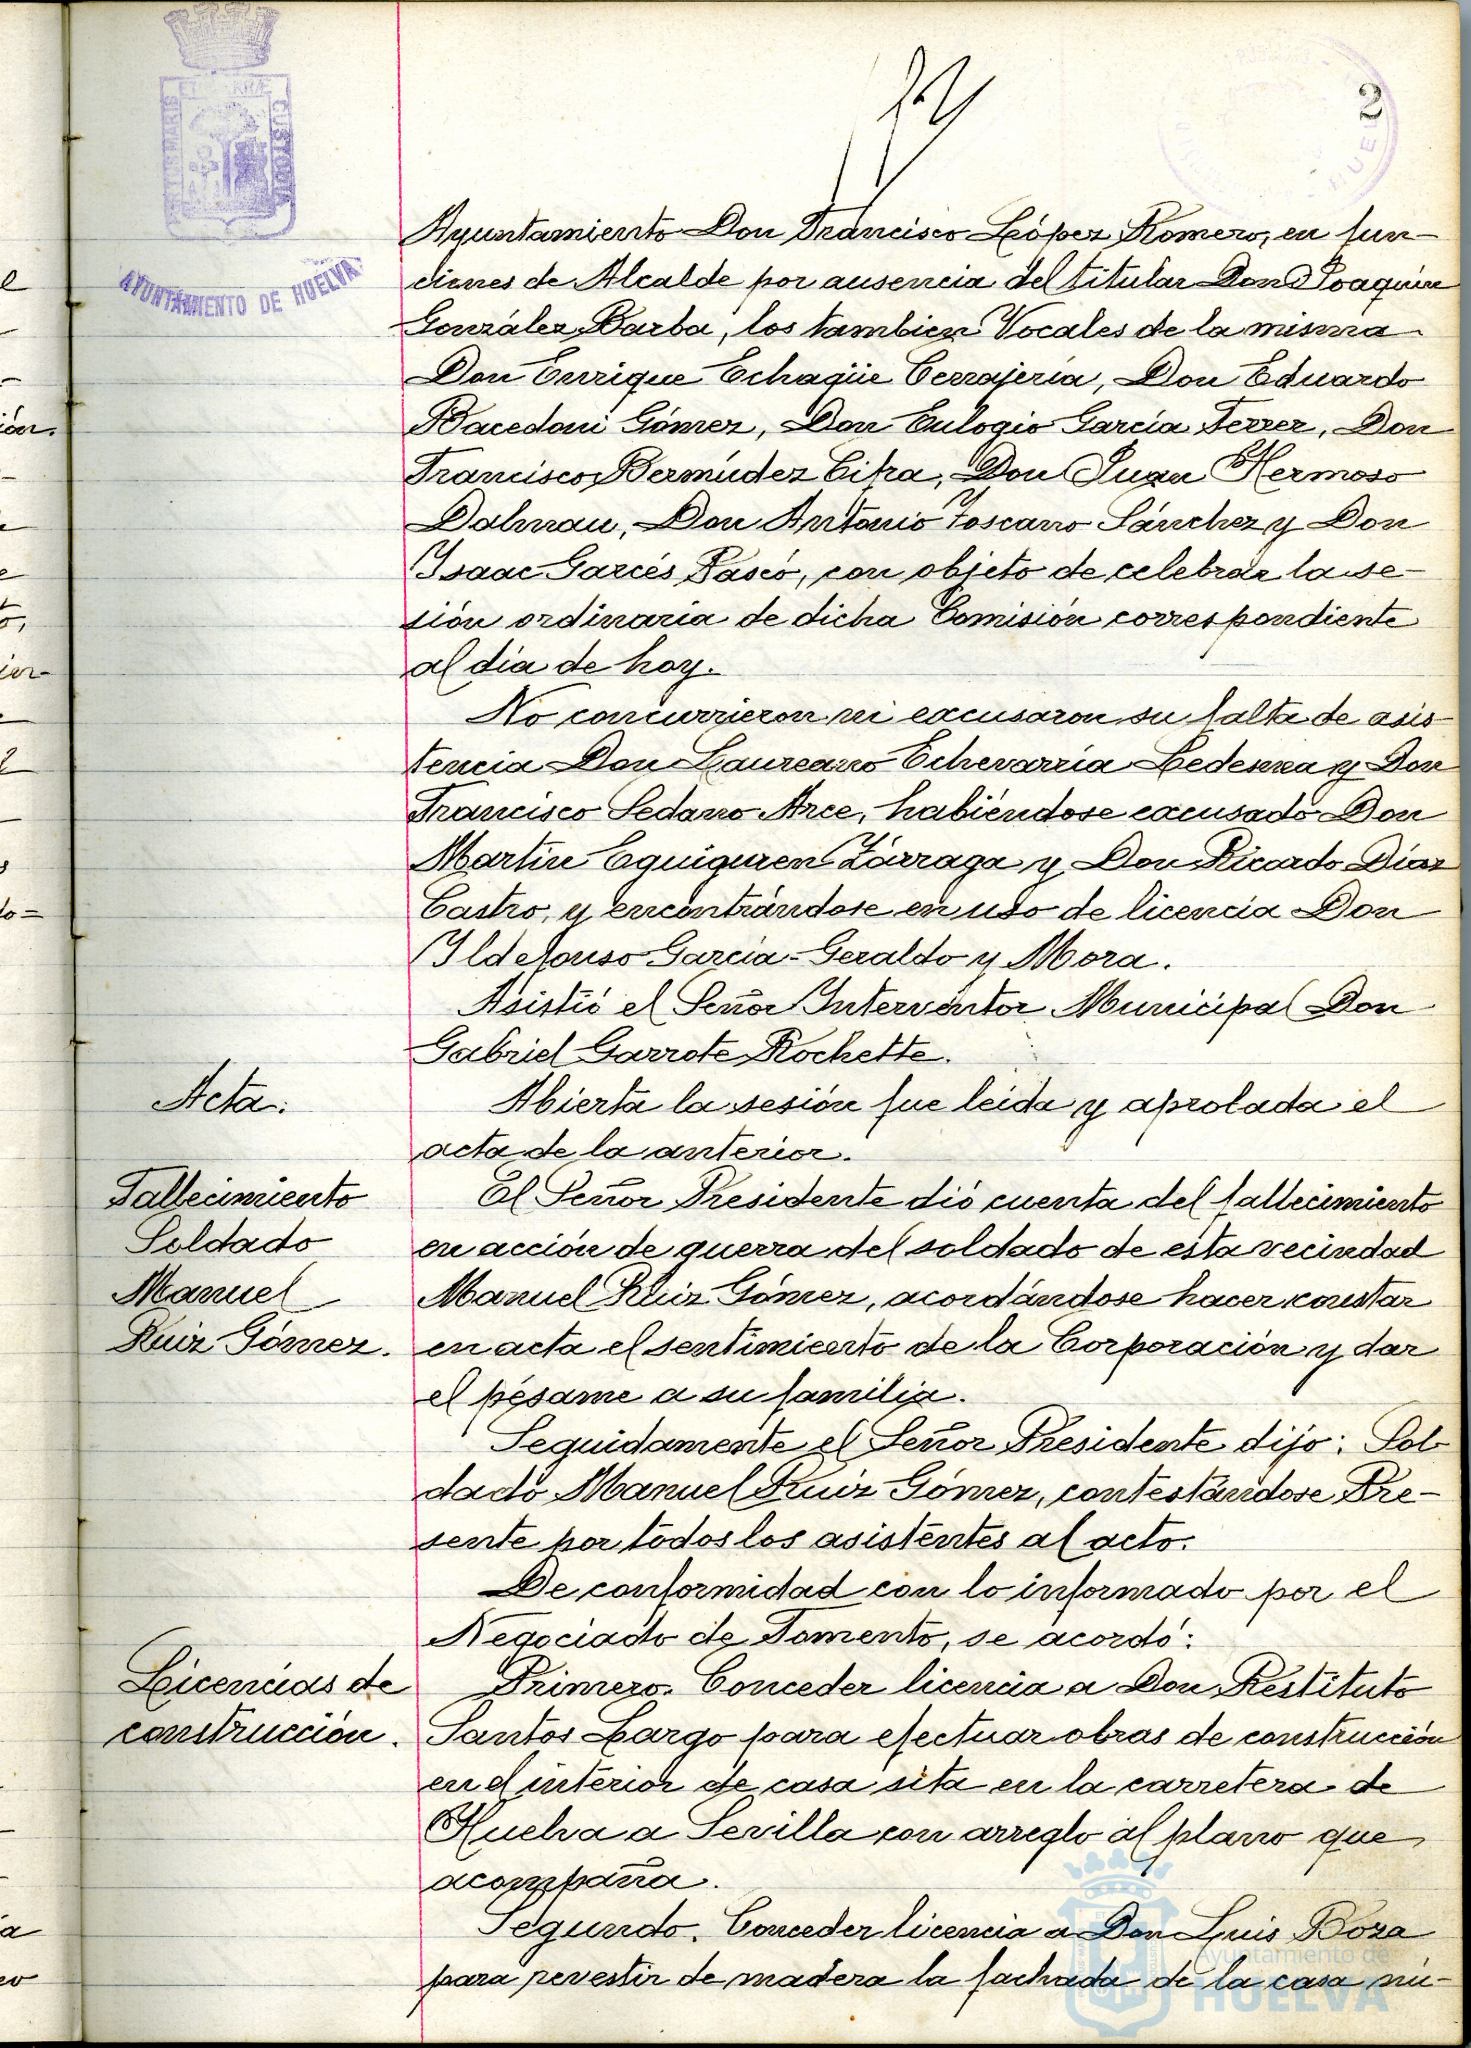 2
PORTUS MARIS ET TERRAE CUSTODIA
AYUNTAMIENTO DE HUELVA
Ayuntamiento Don Francisco López Romero, en fun-
ciones de Alcalde por ausencia del titular Don Joaquín
González Barba, los tambien Vocales de la misma
Don Enrique Echagüe Cerrajería, Don Eduardo
Bacedoni Gómez, Don Eulogio García Ferrer, Don
Francisco Bermúdez Cifra, Don Juan Hermoso
Dalmau, Don Antonio Toscano Sánchez y Don
Isaac Garcés Pascó, con objeto de celebrar la se-
sión ordinaria de dicha Comisión correspondiente
al día de hoy.
No concurrieron ni excusaron su falta de asis-
tencia Don Laureano Echevarría Ledesma y Don
Francisco Sedano Arce, habiéndose excusado Don
Martín Eguiguren Zárraga y Don Ricardo Díaz
Castro, y encontrándose en uso de licencia Don
Ildefonso García-Geraldo y Mora.
Asistió el Señor Interventor Municipal Don
Gabriel Garrote Rochette.
Acta.
Abierta la sesión fue leida y aprobada el
acta de la anterior.
Fallecimiento
Soldado
Manuel
Ruiz Gómez.
El Señor Presidente dió cuenta del fallecimiento
en acción de guerra del soldado de esta vecindad
Manuel Ruiz Gómez, acordándose hacer constar
en acta el sentimiento de la Corporación y dar
el pésame a su familia.
Seguidamente el Señor Presidente dijo: Sol-
dado Manuel Ruiz Gómez, contestándose Pre-
sente por todos los asistentes al acto.
De conformidad con lo informado por el
Negociado de Fomento, se acordó:
Licencias de
construcción.
Primero. Conceder licencia a Don Restituto
Santos Largo para efectuar obras de construcción
en el interior de casa sita en la carretera de
Huelva a Sevilla con arreglo al plano que
acompaña.
Segundo. Conceder licencia a Don Luis Boza
para revestir de madera la fachada de la casa nú-
Ayuntamiento de
HUELVA